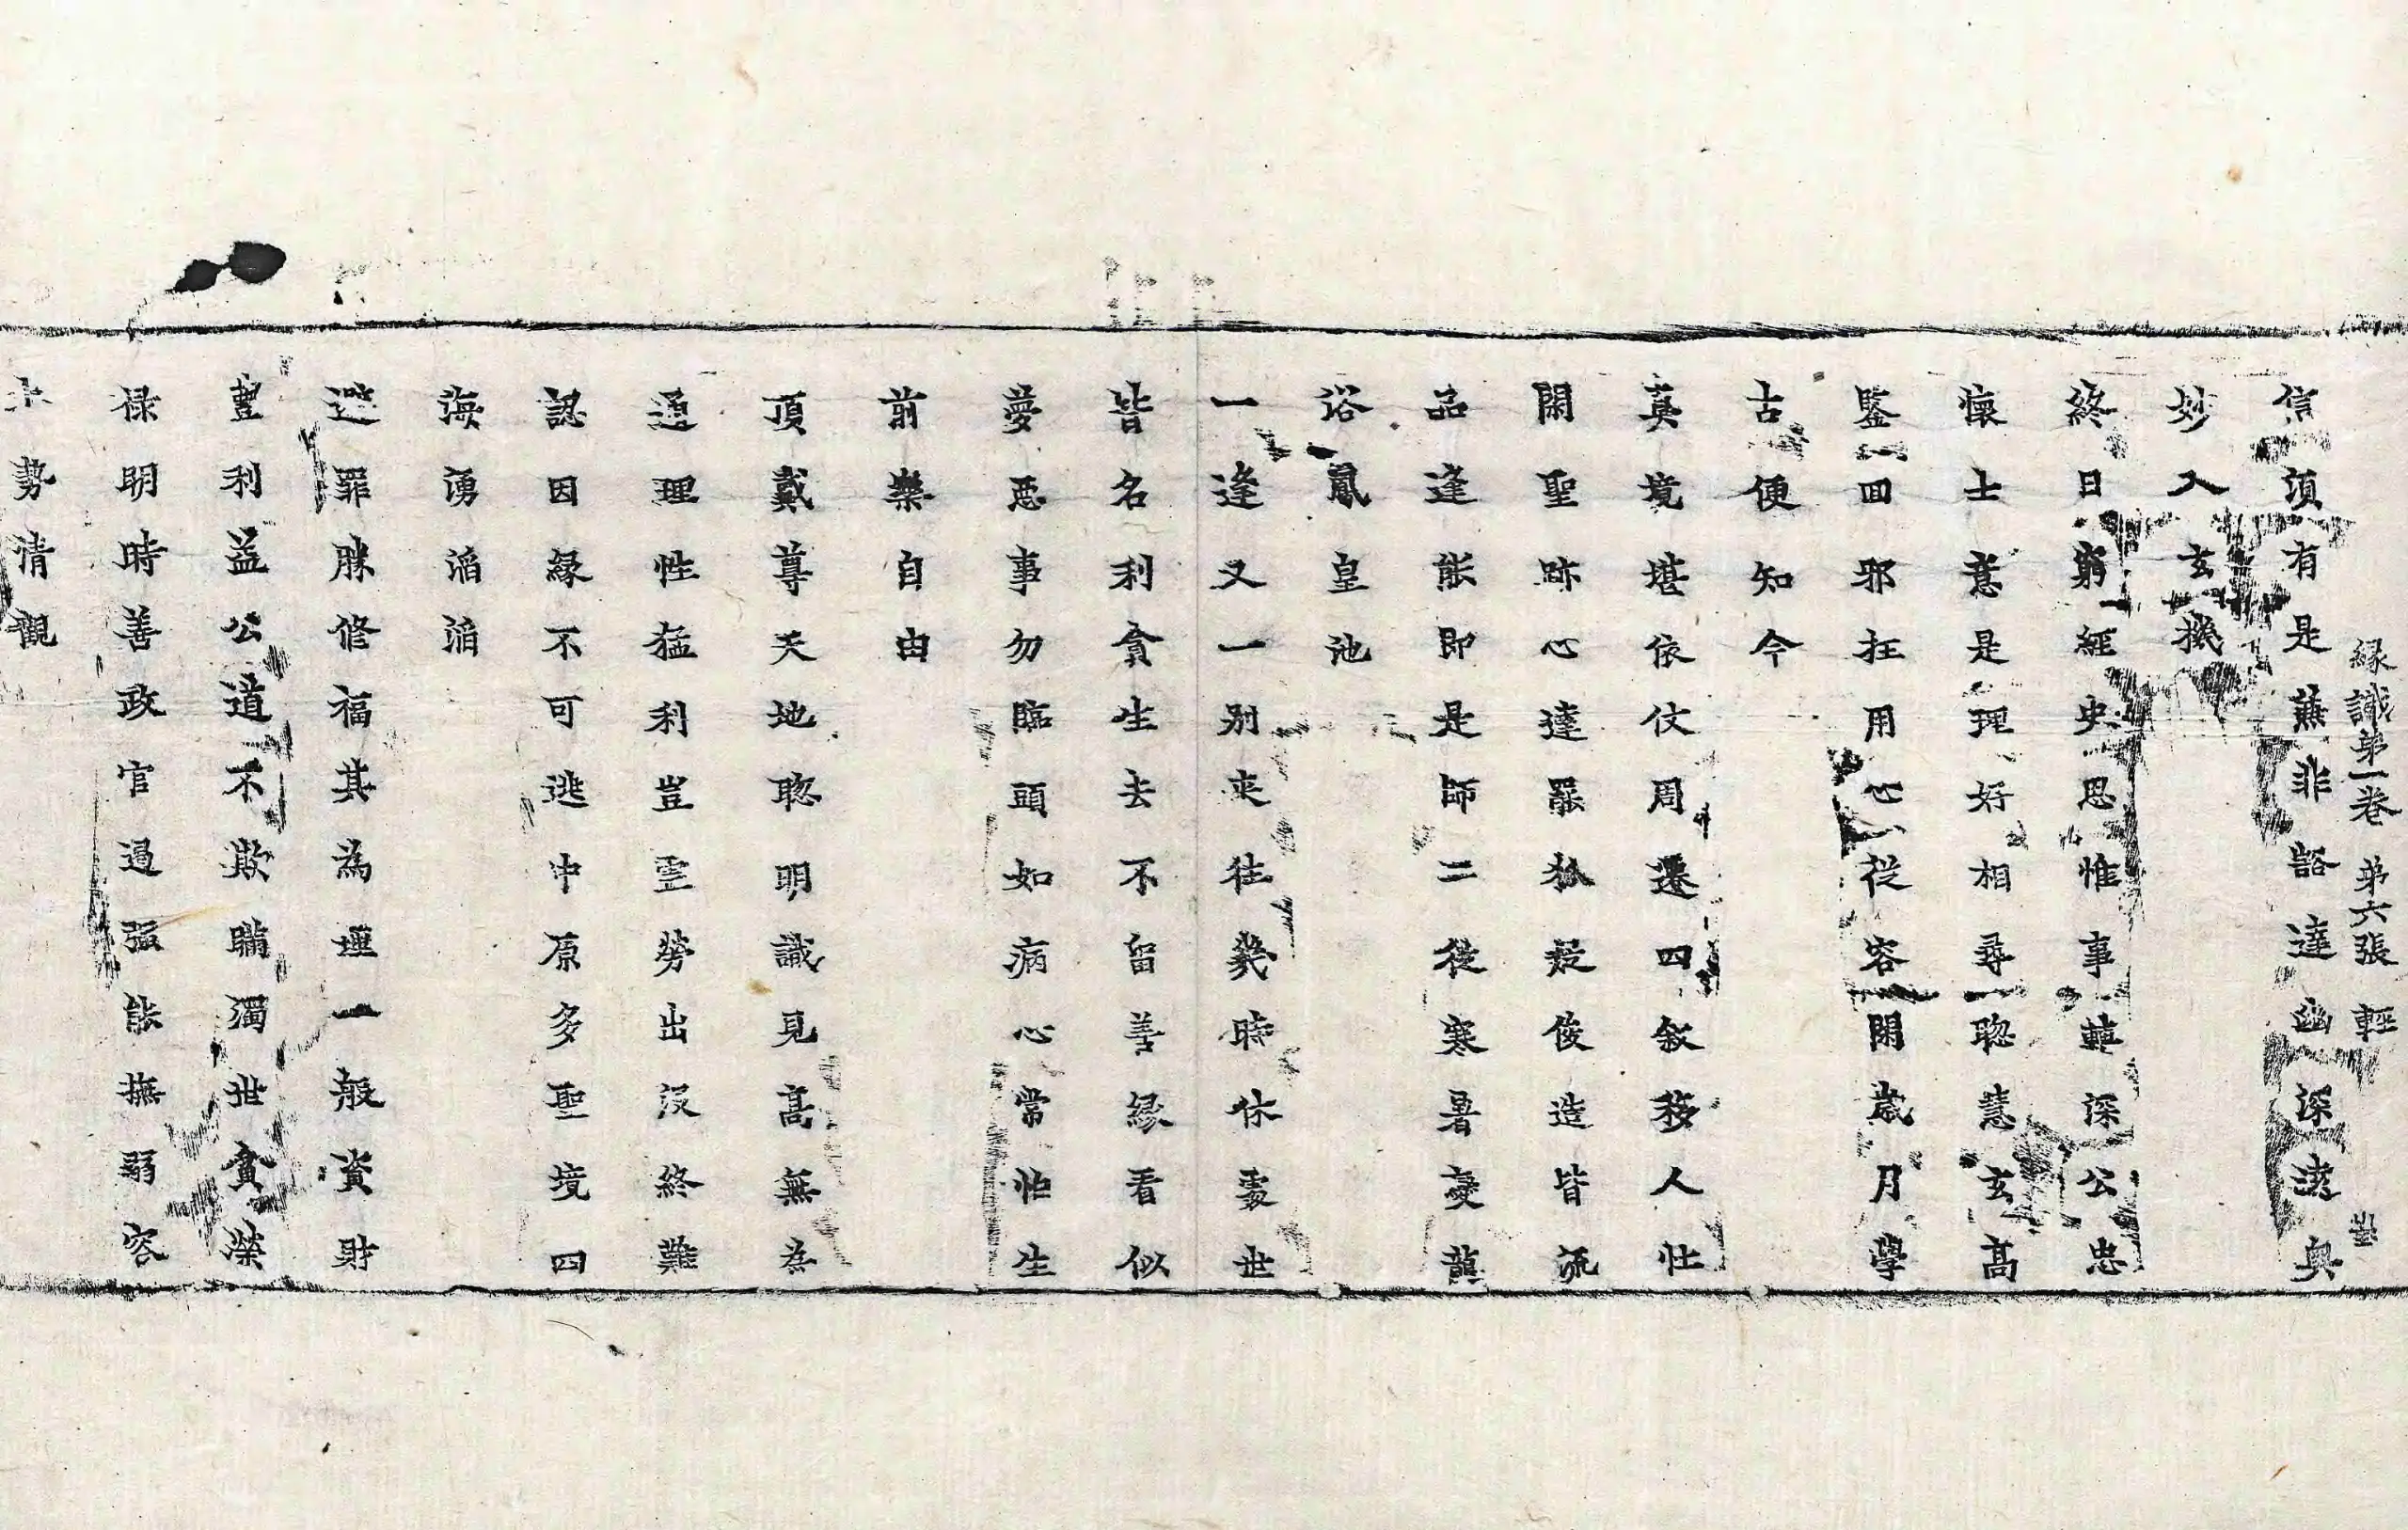 緣識第一卷　第六張　輕
信須有是兼非豁達幽深遠奧
妙入玄機
終日窮經史思惟事轉深公忠
懷士意是理好相尋聦慧玄髙
鑒回邪抂用心従容閑歳月學
古便知今
真境堪依仗周遷四叙移人壮
閑聖跡心達罷狐疑俊造皆流
品逢能即是師二儀寒暑變龍
浴鳳皇池
一逢又一别来往幾時休處世
皆名利貪生去不留善緣看似
夢惡事勿臨頭如病心常怕生
前樂自由
頂戴尊天地聦明識見髙無為
通理性猛利豈虛勞出没終難
認因緣不可逃中原多聖境四
海湧滔滔
避罪勝修福其為理一般資財
豊利益公道不欺瞞濁世貪榮
禄明時善政官過强能撫弱容
勢清觀